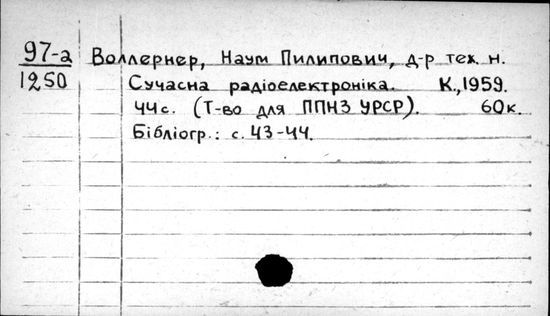 97-а Воллернер, Наум Пилипович, д-р тех. н.
1250 Сучасна радіоелектроніка. К., 1959.
44с. (Т-во для ППНЗ УРСР). 60к.
Бібліогр.: с. 43-44.